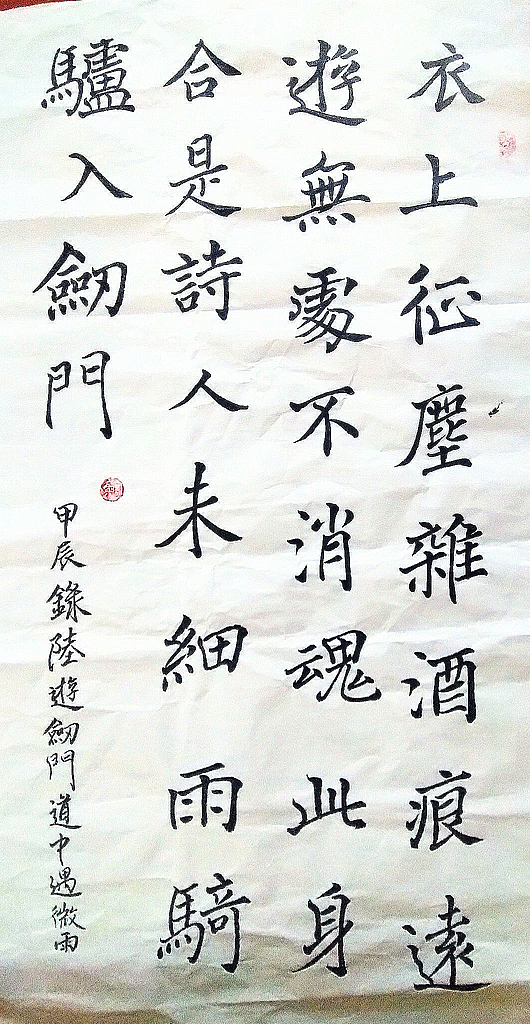 衣上征塵雜酒痕遠
遊無處不消魂此身
合是詩人未細雨騎
驢入劒門
甲辰錄陸遊劒門道中遇微雨